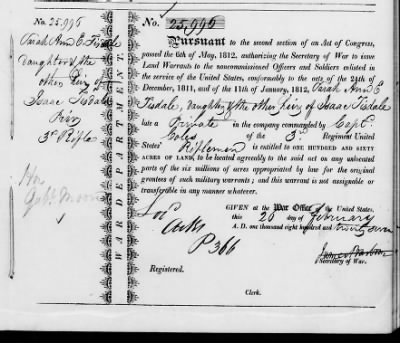 No. 25.996
Sarah Ann E. Tisdale
daughter & the
other heirs of
Isaac Tisdale
Priv
3d Rifle
WAR DEPARTMENT.
No. 25.996
Pursuant to the second section of an Act of Congress,
passed the 6th of May, 1812, authorizing the Secretary of War to issue
Land Warrants to the noncommissioned Officers and Soldiers enlisted in
the service of the United States, conformably to the acts of the 24th of
December, 1811, and of the 11th of January, 1812, Sarah Ann E
Tisdale, daughter & the other heirs of Isaac Tisdale
late a Private in the company commanded by Capt.
of the 3d Regiment United
States' Riflemen is entitled to ONE HUNDRED AND SIXTY
ACRES OF LAND, to be located agreeably to the said act on any unlocated
parts of the six millions of acres appropriated by law for the original
grantees of such military warrants; and this warrant is not assignable or
transferible in any manner whatever.
GIVEN at the War Office of the United States,
this 26 day of February
A. D. one thousand eight hundred and twenty seven
Loc'd
Arks
P 366
James Barbour
Secretary of War.
Registered.
Clerk.